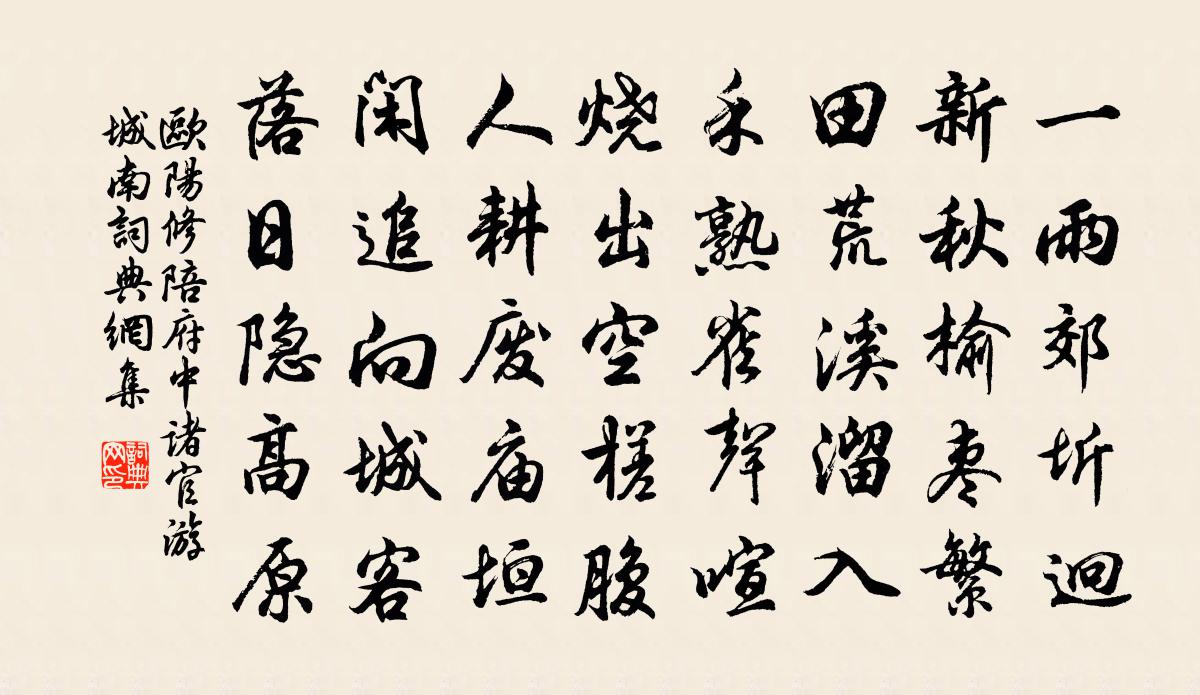 一雨郊圻迥
新秋榆枣繁
田荒溪溜入
禾熟雀聲喧
烧出空槎腹
人耕废庙垣
闲追向城客
落日隐高原
歐陽修陪府中諸官游
城南詞典網集
詞典网印